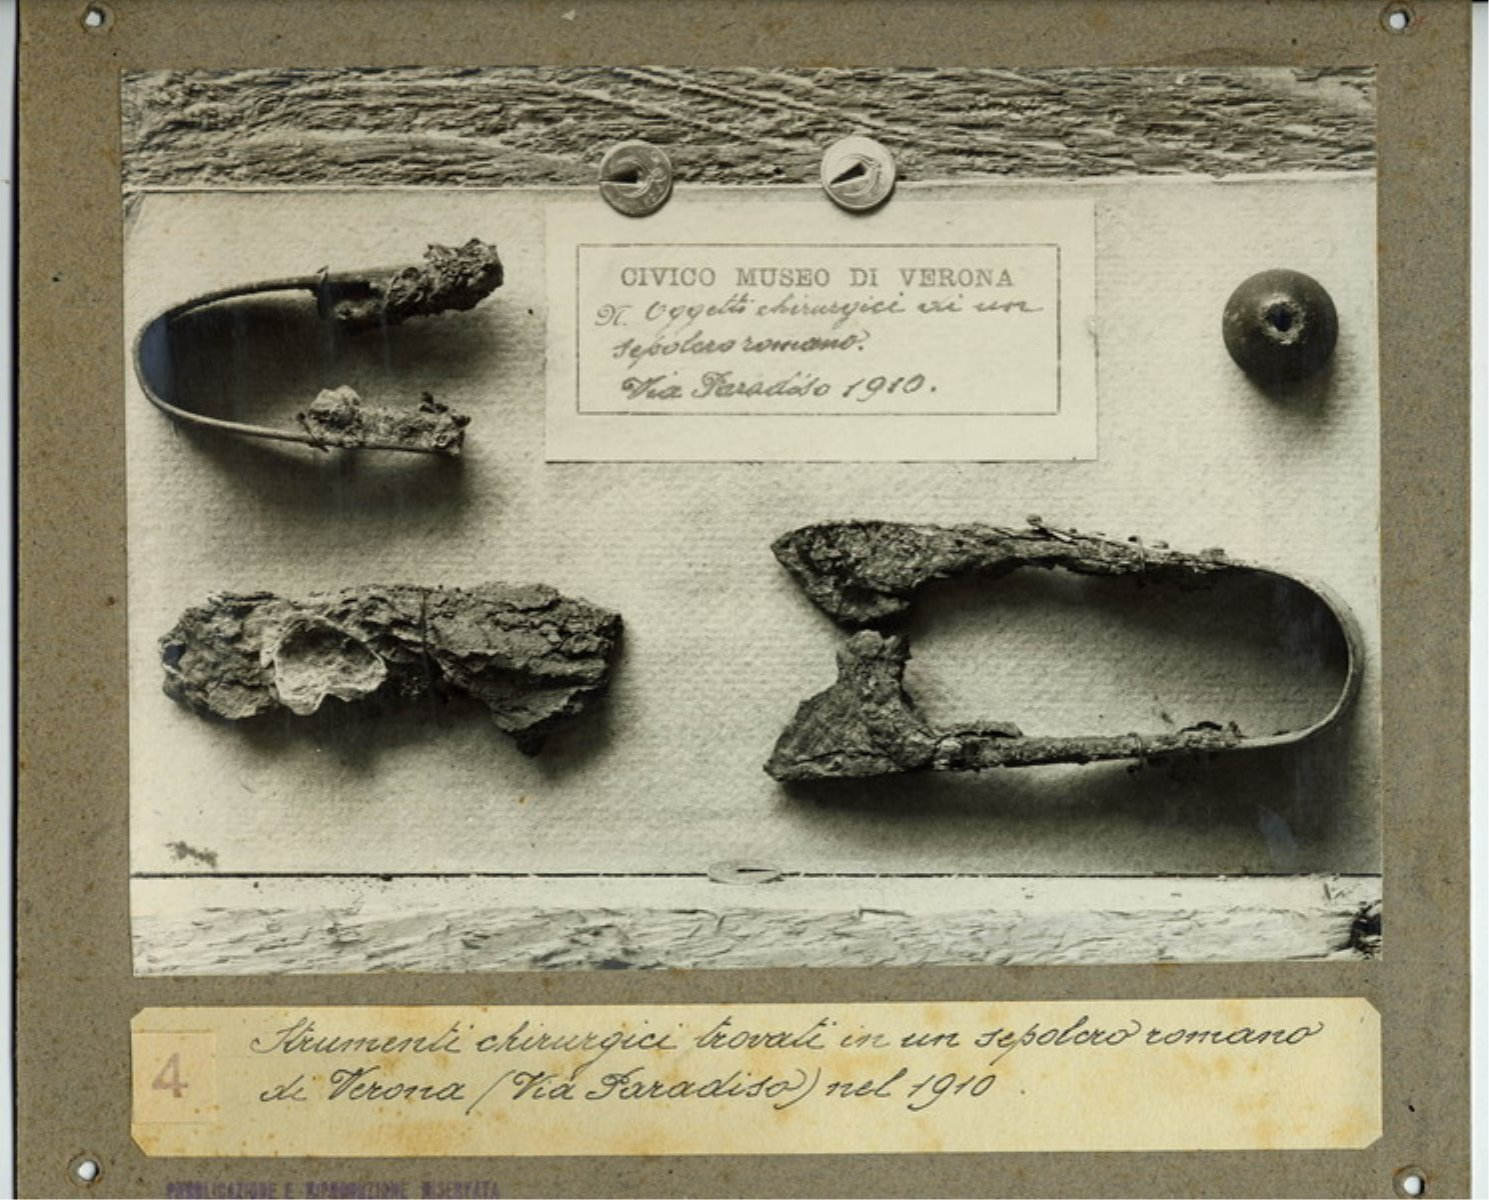 CIVICO MUSEO DI VERONA
N. Oggetti chirurgici di un
sepolcro romano.
Via Paradiso 1910.
4
Strumenti chirurgici trovati in un sepolcro romano
di Verona (Via Paradiso) nel 1910.
PUBBLICAZIONE E RIPRODUZIONE RISERVATA